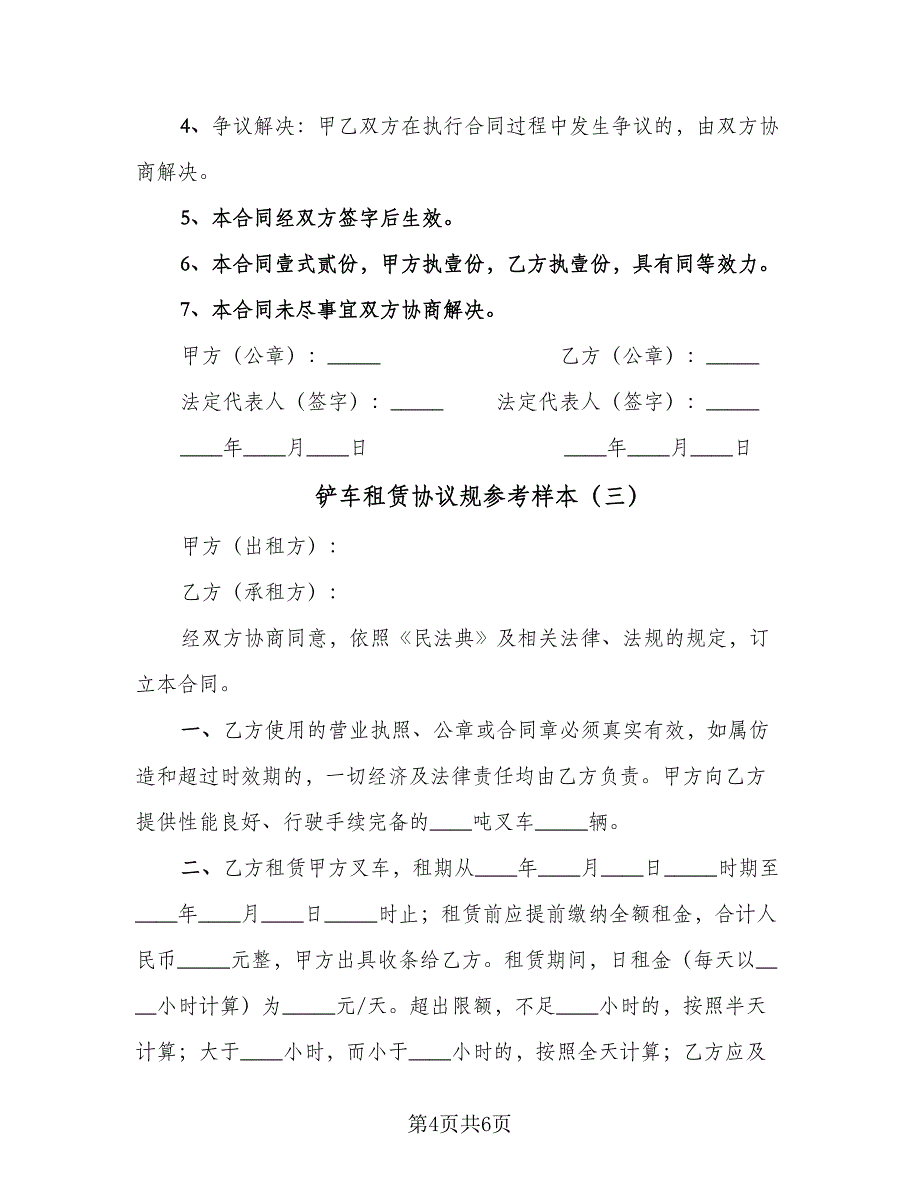 4、争议解决：甲乙双方在执行合同过程中发生争议的，由双方协
商解决。
5、本合同经双方签字后生效。
6、本合同壹式贰份，甲方执壹份，乙方执壹份，具有同等效力。
7、本合同未尽事宜双方协商解决。
甲方（公章）：_____ 乙方（公章）：_____
法定代表人（签字）：_____ 法定代表人（签字）：_____
____年____月____日 ____年____月____日
铲车租赁协议规参考样本（三）
甲方（出租方）：
乙方（承租方）：
经双方协商同意，依照《民法典》及相关法律、法规的规定，订
立本合同。
一、乙方使用的营业执照、公章或合同章必须真实有效，如属仿
造和超过时效期的，一切经济及法律责任均由乙方负责。甲方向乙方
提供性能良好、行驶手续完备的____吨叉车_____辆。
二、乙方租赁甲方叉车，租期从____年____月____日_____时期至
____年____月____日_____时止；租赁前应提前缴纳全额租金，合计人
民币_____元整，甲方出具收条给乙方。租赁期间，日租金（每天以__
__小时计算）为_____元/天。超出限额，不足____小时的，按照半天
计算；大于____小时，而小于____小时的，按照全天计算；乙方应及
第4页共6页